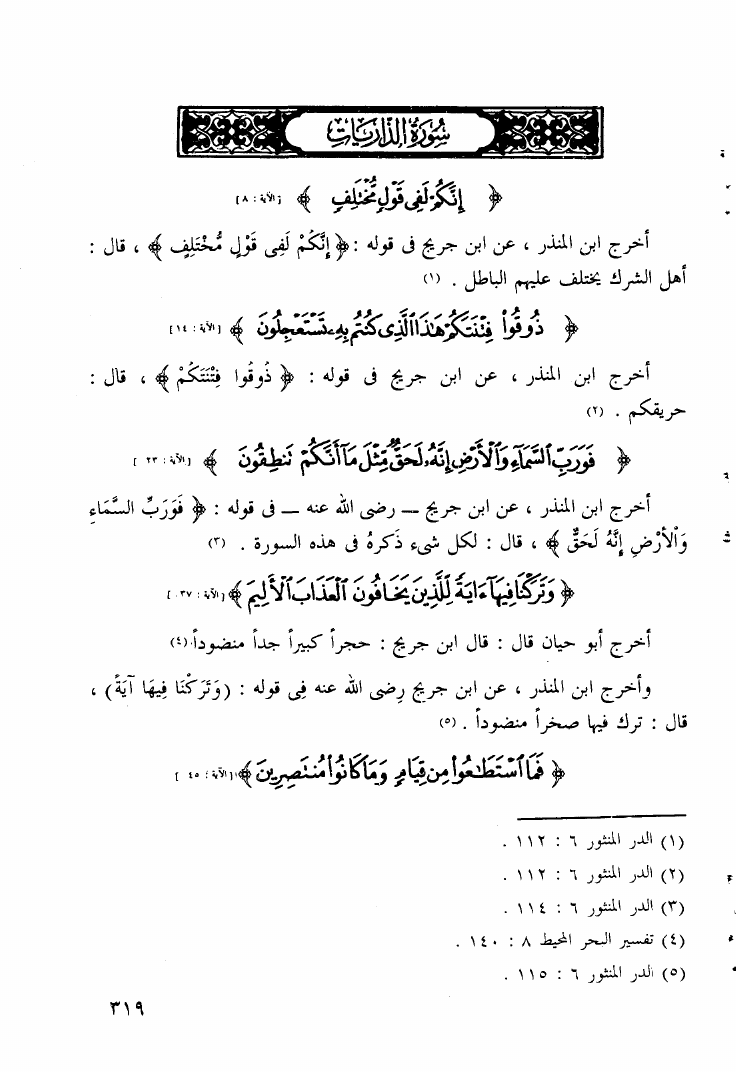 سُورَةُ الذَّارِيَاتِ
﴿ إِنَّكُمْ لَفِى قَوْلٍ مُّخْتَلِفٍ ﴾ [الآية : ٨]
أخرج ابن المنذر ، عن ابن جريج فى قوله : ﴿ إِنَّكُمْ لَفِى قَوْلٍ مُّخْتَلِفٍ ﴾ ، قال :
أهل الشرك يختلف عليهم الباطل . (١)
﴿ ذُوقُوا۟ فِتْنَتَكُمْ هَٰذَا ٱلَّذِى كُنتُم بِهِۦ تَسْتَعْجِلُونَ ﴾ [الآية : ١٤]
أخرج ابن المنذر ، عن ابن جريج فى قوله : ﴿ ذُوقُوا فِتْنَتَكُمْ ﴾ ، قال :
حريقكم . (٢)
﴿ فَوَرَبِّ ٱلسَّمَآءِ وَٱلْأَرْضِ إِنَّهُۥ لَحَقٌّ مِّثْلَ مَآ أَنَّكُمْ تَنطِقُونَ ﴾ [الآية : ٢٣ ]
أخرج ابن المنذر ، عن ابن جريج ــ رضى الله عنه ــ فى قوله : ﴿ فَوَرَبِّ السَّمَاءِ
وَالْأَرْضِ إِنَّهُ لَحَقٌّ ﴾ ، قال : لكل شىء ذَكرهُ فى هذه السورة . (٣)
﴿ وَتَرَكْنَا فِيهَآ ءَايَةً لِّلَّذِينَ يَخَافُونَ ٱلْعَذَابَ ٱلْأَلِيمَ ﴾ [الآية : ٣٧ ]
أخرج أبو حيان قال : قال ابن جريج : حجراً كبيراً جداً منضوداً.(٤)
وأخرج ابن المنذر ، عن ابن جريج رضى الله عنه فى قوله : (وَتَرَكْنَا فِيهَا آيَةً) ،
قال : ترك فيها صخراً منضوداً . (٥)
﴿ فَمَا ٱسْتَطَٰعُوا۟ مِن قِيَامٍ وَمَا كَانُوا۟ مُنتَصِرِينَ ﴾ [الآية : ٤٥ ]
(١) الدر المنثور ٦ : ١١٢ .
(٢) الدر المنثور ٦ : ١١٢ .
(٣) الدر المنثور ٦ : ١١٤ .
(٤) تفسير البحر المحيط ٨ : ١٤٠ .
(٥) الدر المنثور ٦ : ١١٥ .
٣١٩